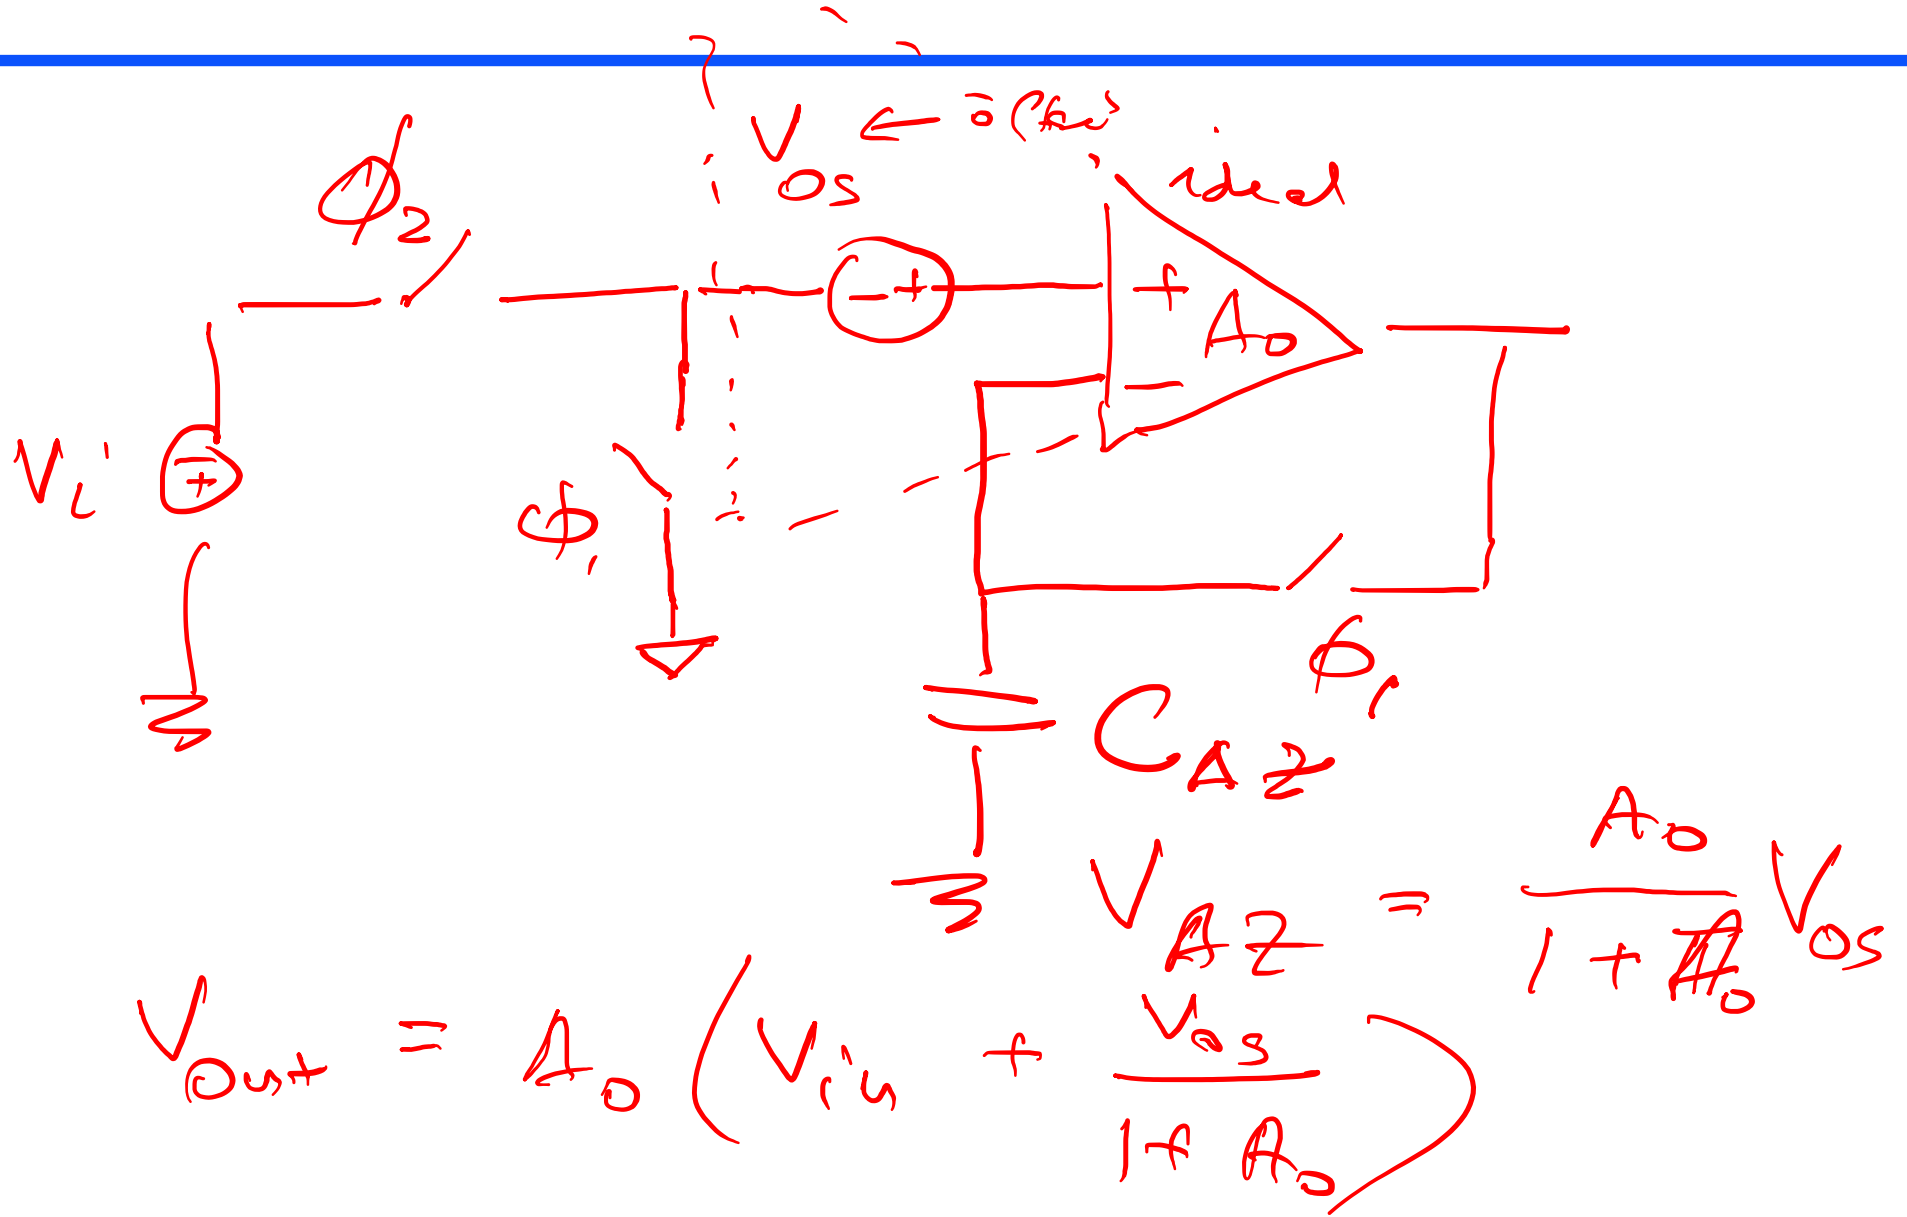 V_OS ←
ideal
ϕ_2
+
- +
A_0
-
V_i
- +
ϕ_1
ϕ_1
C_AZ
V_AZ = A_0 / (1 + A_0) V_OS
V_out = A_0 (V_in + V_os / (1 + A_0))